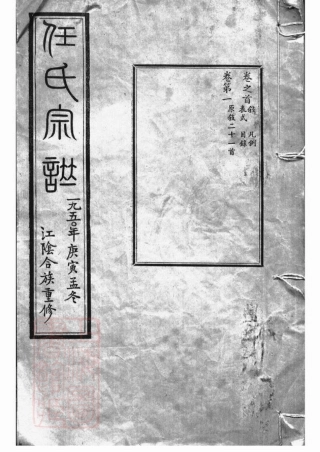 卷之首 敘 凡例
表式 目錄
卷第一
原敘二十一首
任氏宗譜
一九五〇年庚寅孟冬
江陰合族重修